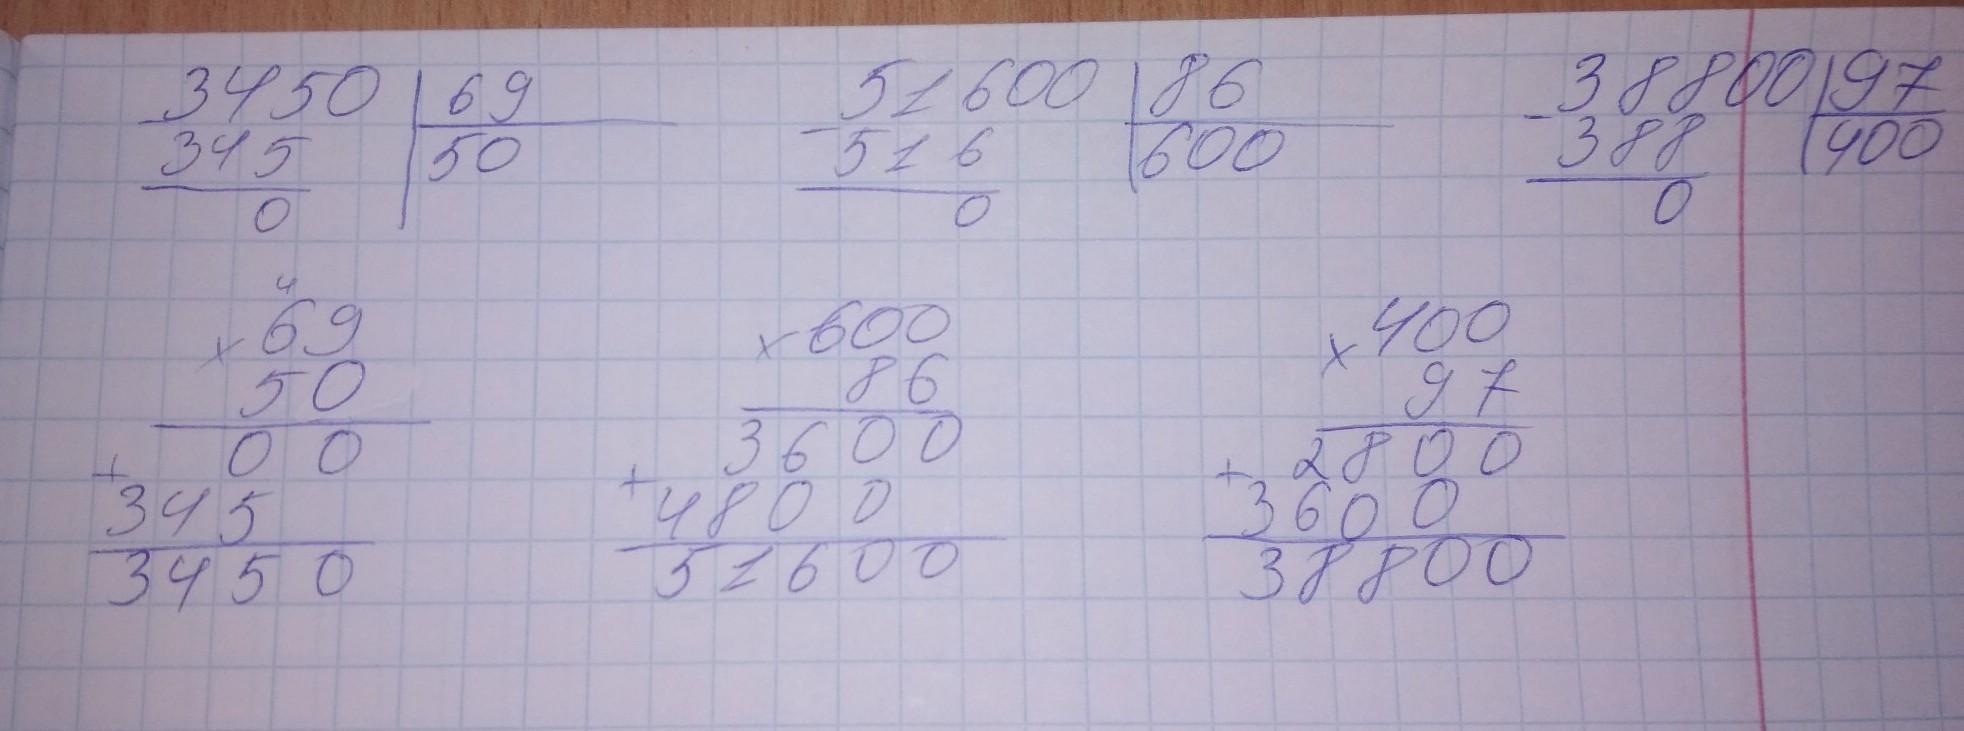 3450 | 69    51600 | 86    38800 | 97
- 345 | 50    - 516 | 600    - 388 | 400
0    0    0
4
× 69    × 600    × 400
50    86    97
00    3600    2800
+ 345    + 4800    + 3600
3450    51600    38800